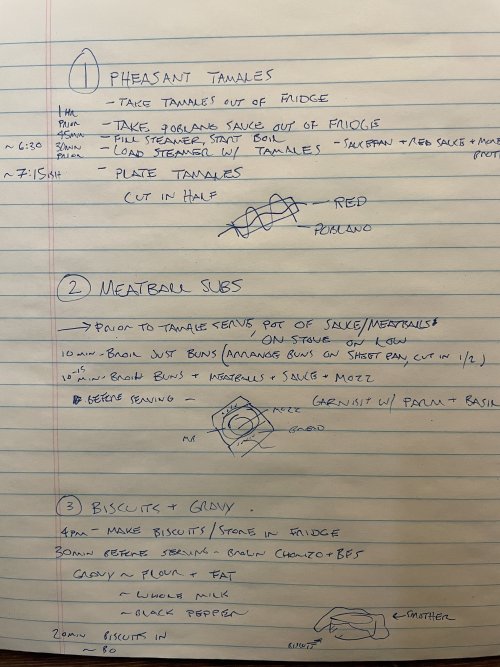 1 PHEASANT TAMALES
- TAKE TAMALES OUT OF FRIDGE
1 HR PRIOR - TAKE POBLANO SAUCE OUT OF FRIDGE
45MIN - FILL STEAMER, START BOIL
~ 6:30 30MIN PRIOR - LOAD STEAMER W/ TAMALES - SAUCEPAN + RED SAUCE + MORE
~ 7:15ISH - PLATE TAMALES
CUT IN HALF
RED
POBLANO
2 MEATBALL SUBS
→ PRIOR TO TAMALE SERVE, POT OF SAUCE/MEATBALLS
ON STOVE ON LOW
10 MIN - BROIL JUST BUNS (ARRANGE BUNS ON SHEET PAN, CUT IN 1/2)
10-15 MIN - BROIL BUNS + MEATBALLS + SAUCE + MOZZ
BEFORE SERVING - GARNISH W/ PARM + BASIL
MOZZ
MB BREAD
3 BISCUITS + GRAVY
4PM - MAKE BISCUITS/STORE IN FRIDGE
30MIN BEFORE SERVING - BROWN CHORIZO + BFS
GRAVY ~ FLOUR + FAT
~ WHOLE MILK
~ BLACK PEPPER
← SMOTHER
BISCUIT
20MIN BISCUITS IN
~ BO